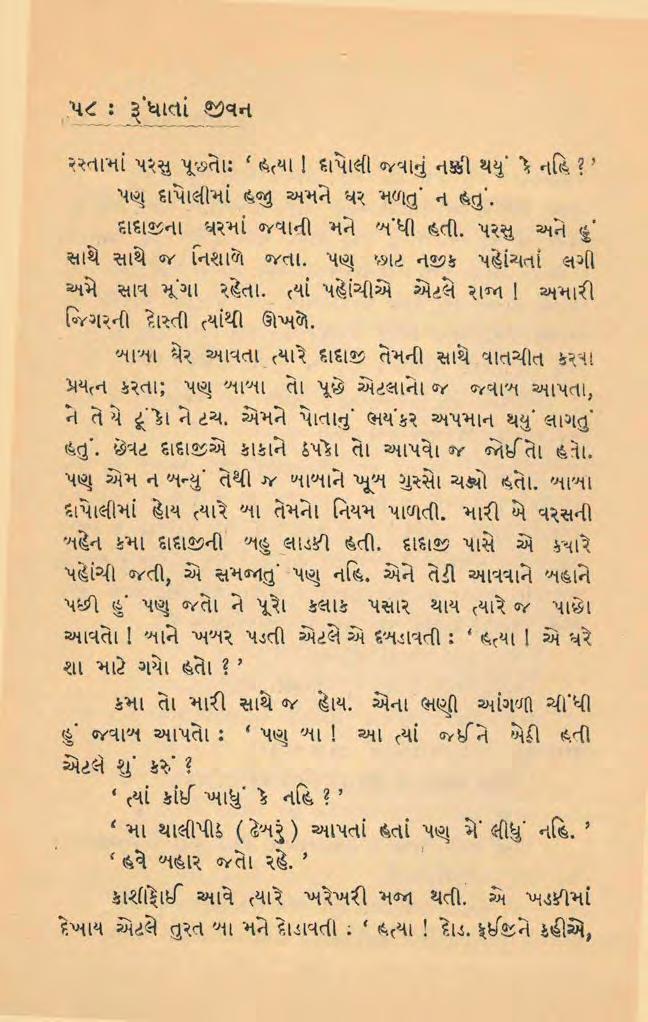 ૫૮ : રૂંધાતાં જીવન
રસ્તામાં પરસુ પૂછતોઃ ‘ હત્યા ! દાપોલી જવાનું નક્કી થયું કે નહિ ? ’
પણ દાપોલીમાં હજુ અમને ઘર મળતું ન હતું.
દાદાજીના ઘરમાં જવાની મને બંધી હતી. પરસુ અને હું
સાથે સાથે જ નિશાળે જતા. પણ છાટ નજીક પહોંચતાં લગી
અમે સાવ મૂંગા રહેતા. ત્યાં પહોંચીએ એટલે રાજા ! અમારી
જિગરની દોસ્તી ત્યાંથી ઊખળે.
બાબા ઘેર આવતા ત્યારે દાદાજી તેમની સાથે વાતચીત કરવા
પ્રયત્ન કરતા; પણ બાબા તો પૂછે એટલાનો જ જવાબ આપતા,
ને તે યે ટૂંકો ને ટચ. એમને પોતાનું ભયંકર અપમાન થયું લાગતું
હતું. છેવટ દાદાજીએ કાકાને ઠપકો તો આપવો જ જોઈતો હતો.
પણ એમ ન બન્યું તેથી જ બાબાને ખૂબ ગુસ્સો ચઢ્યો હતો. બાબા
દાપોલીમાં હોય ત્યારે બા તેમનો નિયમ પાળતી. મારી બે વરસની
બહેન કમા દાદાજીની બહુ લાડકી હતી. દાદાજી પાસે એ ક્યારે
પહોંચી જતી, એ સમજાતું પણ નહિ. એને તેડી આવવાને બહાને
પછી હું પણ જતો ને પૂરો કલાક પસાર થાય ત્યારે જ પાછો
આવતો ! બાને ખબર પડતી એટલે એ દબડાવતી : ‘ હત્યા ! એ ઘરે
શા માટે ગયો હતો ? ’
કમા તો મારી સાથે જ હોય. એના ભણી આંગળી ચીંધી
હું જવાબ આપતો : ‘ પણ બા ! આ ત્યાં જઈને બેઠી હતી
એટલે શું કરું ?
‘ ત્યાં કાંઈ ખાધું કે નહિ ? ’
‘ મા થાલીપીઠ ( ઢેબરું ) આપતાં હતાં પણ મેં લીધું નહિ. ’
‘ હવે બહાર જતો રહે. ’
કાશીફોઈ આવે ત્યારે ખરેખરી મજા થતી. એ ખડકીમાં
દેખાય એટલે તુરત બા મને દોડાવતી : ‘ હત્યા ! દોડ. ફઈજીને કહીએ,